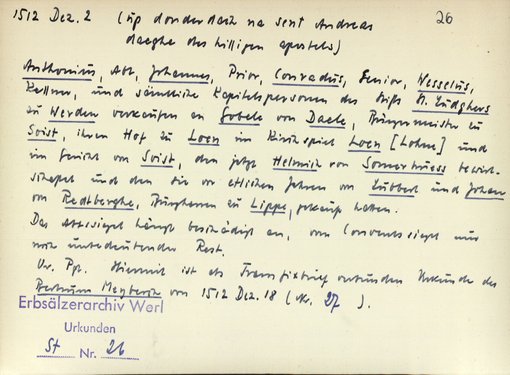 26
1512 Dez. 2 (up donderdach na sent Andreas
daeghe des hilligen apostels)
Anthonius, Abt, Johannes, Prior, Conradus, Senior, Wesselus,
Kellner, und sämtliche Kapitelspersonen des Stifts St. Lüdghers
zu Werden verkaufen an Gobele von Daele, Bürgermeister zu
Soist, ihren Hof zu Loen im Kirchspiel Loen [Lohne] und
im Gericht von Soist, den jetzt Heinrich von bewirt-
schaftet und den sie vor etlichen Jahren von Lübbert und Johan
von Redtberghe, Burghannen zu Lippe, gekauft hatten.
Das Abteisiegel hängt beschädigt an, vom Conventssiegel nur
noch unbedeutender Rest.
Or. Pgt. Hiermit ist als Transfixbrief verbunden Urkunde des
Bertram Meyberch von 1512 Dez. 18 (Nr. 27).
Erbsälzerarchiv Werl
Urkunden
St Nr. 26